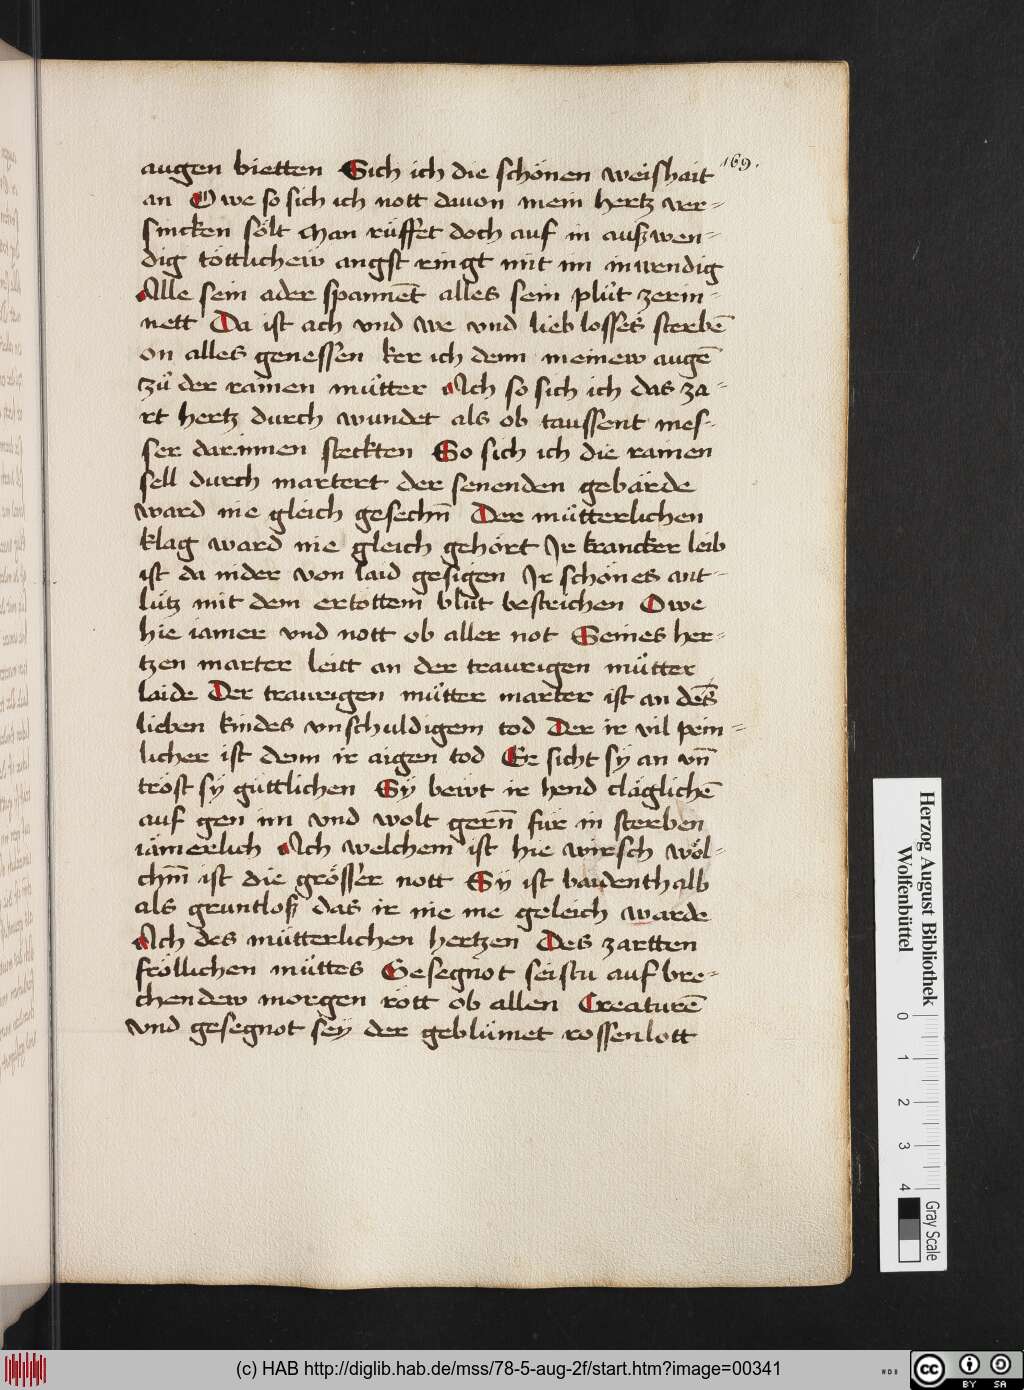 169.
augen bietten Sich ich die schönen weishait
an Owe so sich ich nott davon mein hertz ver=
sincken sölt Man rüffet doch auf in außwen=
dig töttlichew angst ringt mit im inwendig
Alle sein ader spannet alles sein plüt zerin=
nett Da ist ach vnd we vnd lieb losses sterbē
on alles genessen ker ich denn meinew augē
zů der rainen můtter Ach so sich ich das za=
rt hertz durch wundet als ob taussent mes=
ser darinnen steckten So sich ich die rainen
sell durch martert der senenden gebärde
ward nie gleich gesechn̄ Der můtterlichen
klag ward nie gleich gehört Jr krancker leib
ist da nider von laid gesigen Jr schönes ant=
lütz mit dem ertöttem blůt bestrichen Owe
hie iamer vnd nott ob aller not Seines her=
tzen marter leitt an der traurigen můtter
laide Der traurigen můtter marter ist an des
lieben kindes vnschuldigem tod Der ir vil pein=
licher ist denn ir aigen tod Er sicht sÿ an vn̄
tröst sÿ güttlichen Sÿ bewt ir hend cläglichē
auf gen im vnd wolt gern̄ für in sterben
iämerlich Ach welchem ist hie wirsch wöl=
chm̄ ist die grösser nott Sÿ ist baidenthalb
als gruntloß das ir nie me geleich warde
Ach des můtterlichen hertzen Des zartten
fröllichen můttes Gesegnot seistu auf bre=
chendew morgen rött ob allen Creaturē
vnd gesegnot seÿ der geblümet rossenlott
Herzog August Bibliothek
Wolfenbüttel
0 1 2 3 4
Gray Scale
(c) HAB http://diglib.hab.de/mss/78-5-aug-2f/start.htm?image=00341
WDB
CC BY SA